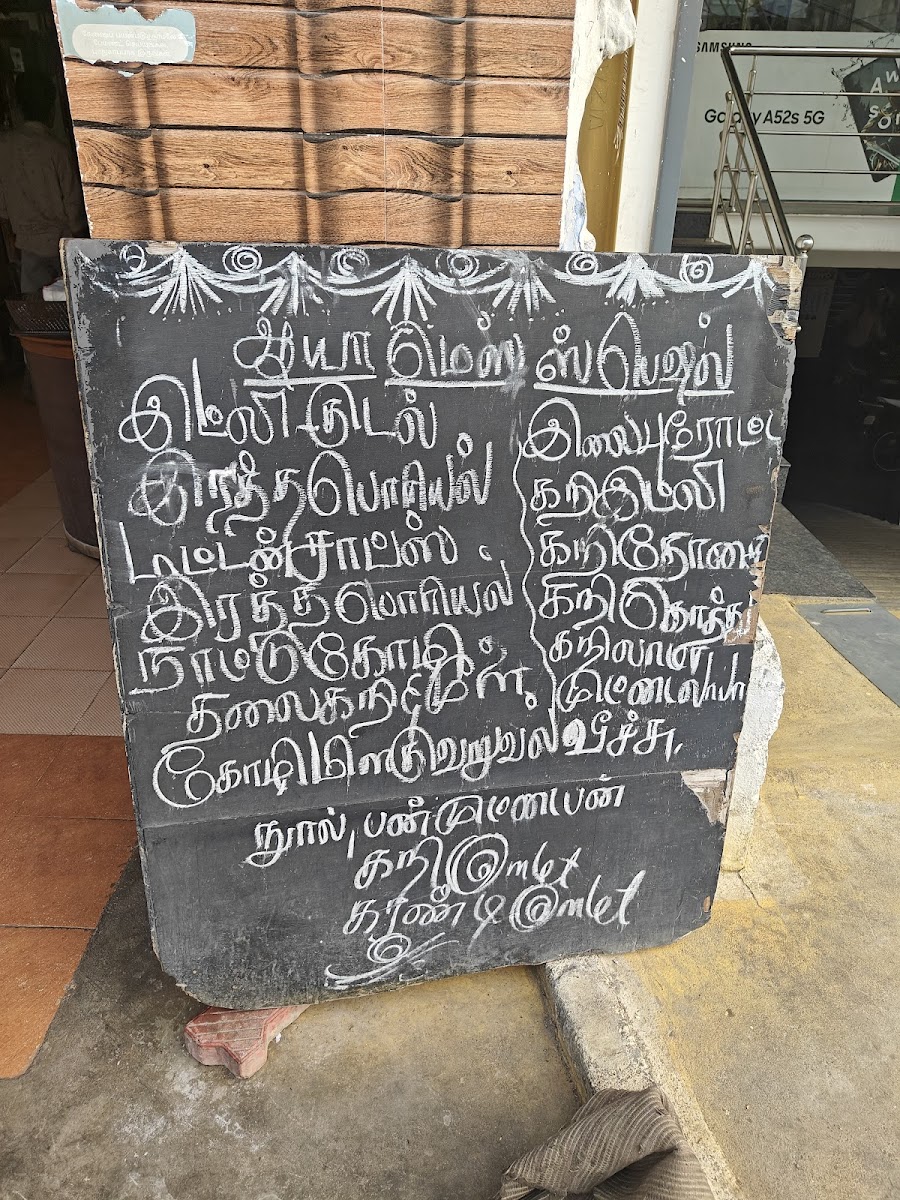 SAMSUNG
Galaxy A52s 5G
ஆயா மெஸ் ஸ்பெஷல்
இட்லி குடல்
இரத்த பொரியல்
மட்டன் சாப்ஸ்
இரத்த பொரியல்
நாட்டு கோழி
தலைகறி, மூளை
கோழி மிளகு வறுவல்
இலை புரோட்டா
கறி இட்லி
கறி தோசை
கறி கொத்து
கறி லாபா
முட்டை லாபா
வீச்சு,
நூல், பன் முட்டை பன்
கறி Omlet
கரண்டி Omlet